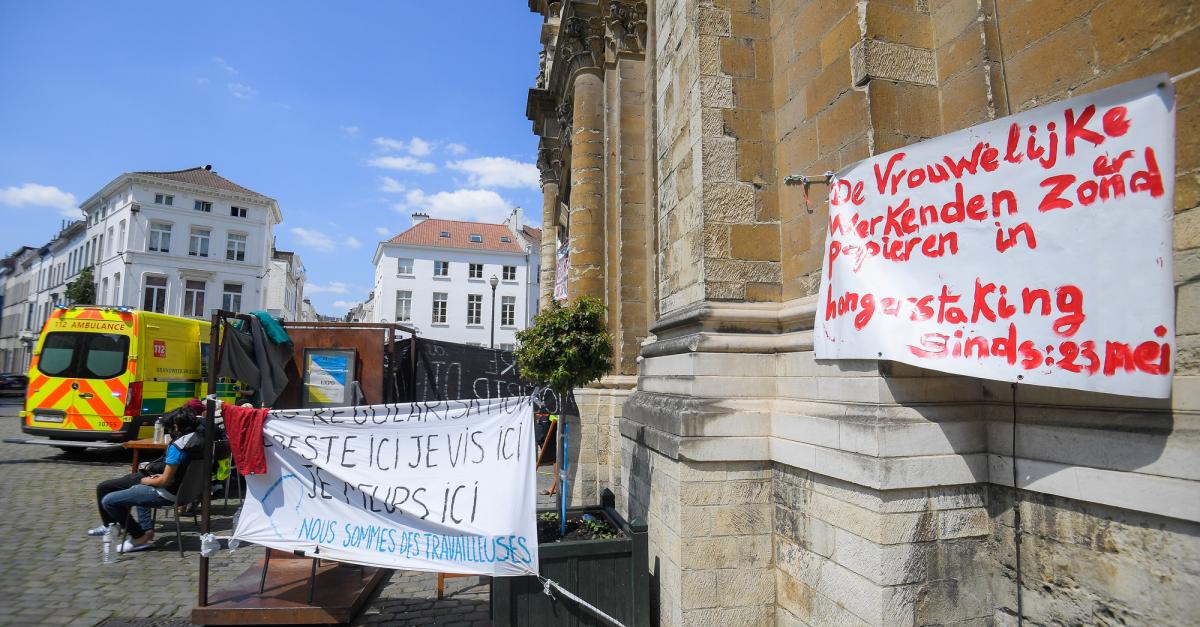 112 AMBULANCE
112
BRANDWEER BRUSSEL
EXPO
REGULARISATION
RESTE ICI JE VIS ICI
JE MEURS ICI
NOUS SOMMES DES TRAVAILLEUSES
De Vrouwelijke
werkenden zonder
papieren in
hongerstaking
sinds: 23 mei